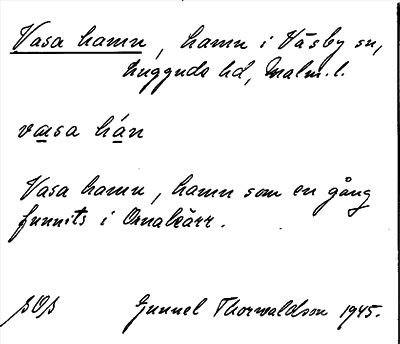 Vasa hamn, hamn i Väsby sn,
Luggude hd, Malm. l.
vasa hán
Vasa hamn, hamn som en gång
funnits i
SOS Gunnel Thorwaldson 1945.